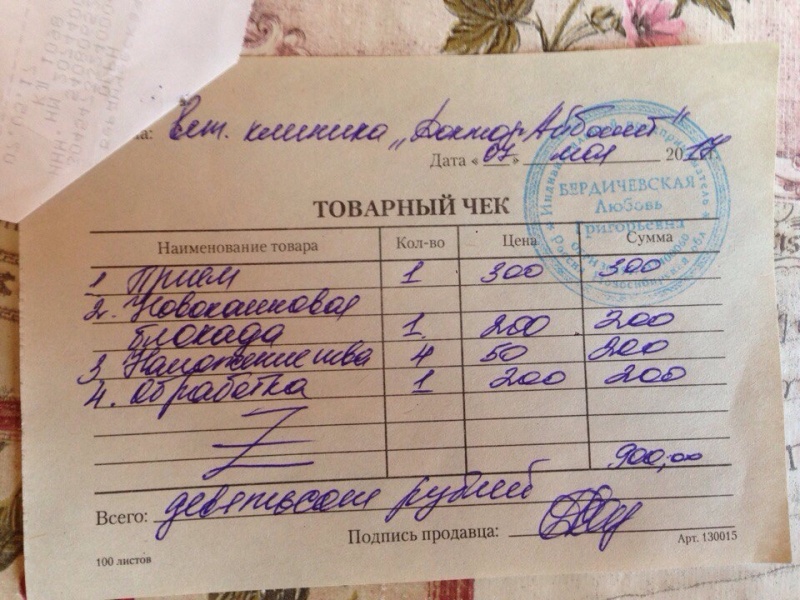 на: Вет. клиника „Доктор Айболит"
Дата «07» мая 2017г.
ТОВАРНЫЙ ЧЕК
Наименование товара Кол-во Цена Сумма
1 Приём 1 300 300
2. Новокаиновая
блокада 1 200 200
3 Наложение шва 4 50 200
4. Обработка 1 200 200
900,00
Всего: девятьсот рублей
Подпись продавца:
100 листов
Арт. 130015
Индивидуальный предприниматель
БЕРДИЧЕВСКАЯ
Любовь
Григорьевна